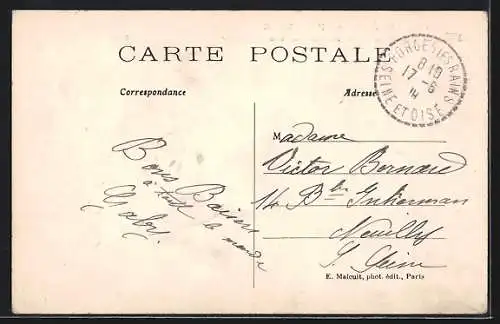 CARTE POSTALE
FORGES LES BAINS
8 10
17 - 6
14
SEINE ET OISE
Correspondance
Adresse
Bons Baisers
à tout le monde
Gaby
Madame
Victor Bernard
14 Bd Inkerman
Neuilly
s/ Seine
E. Malcuit, phot. édit., Paris